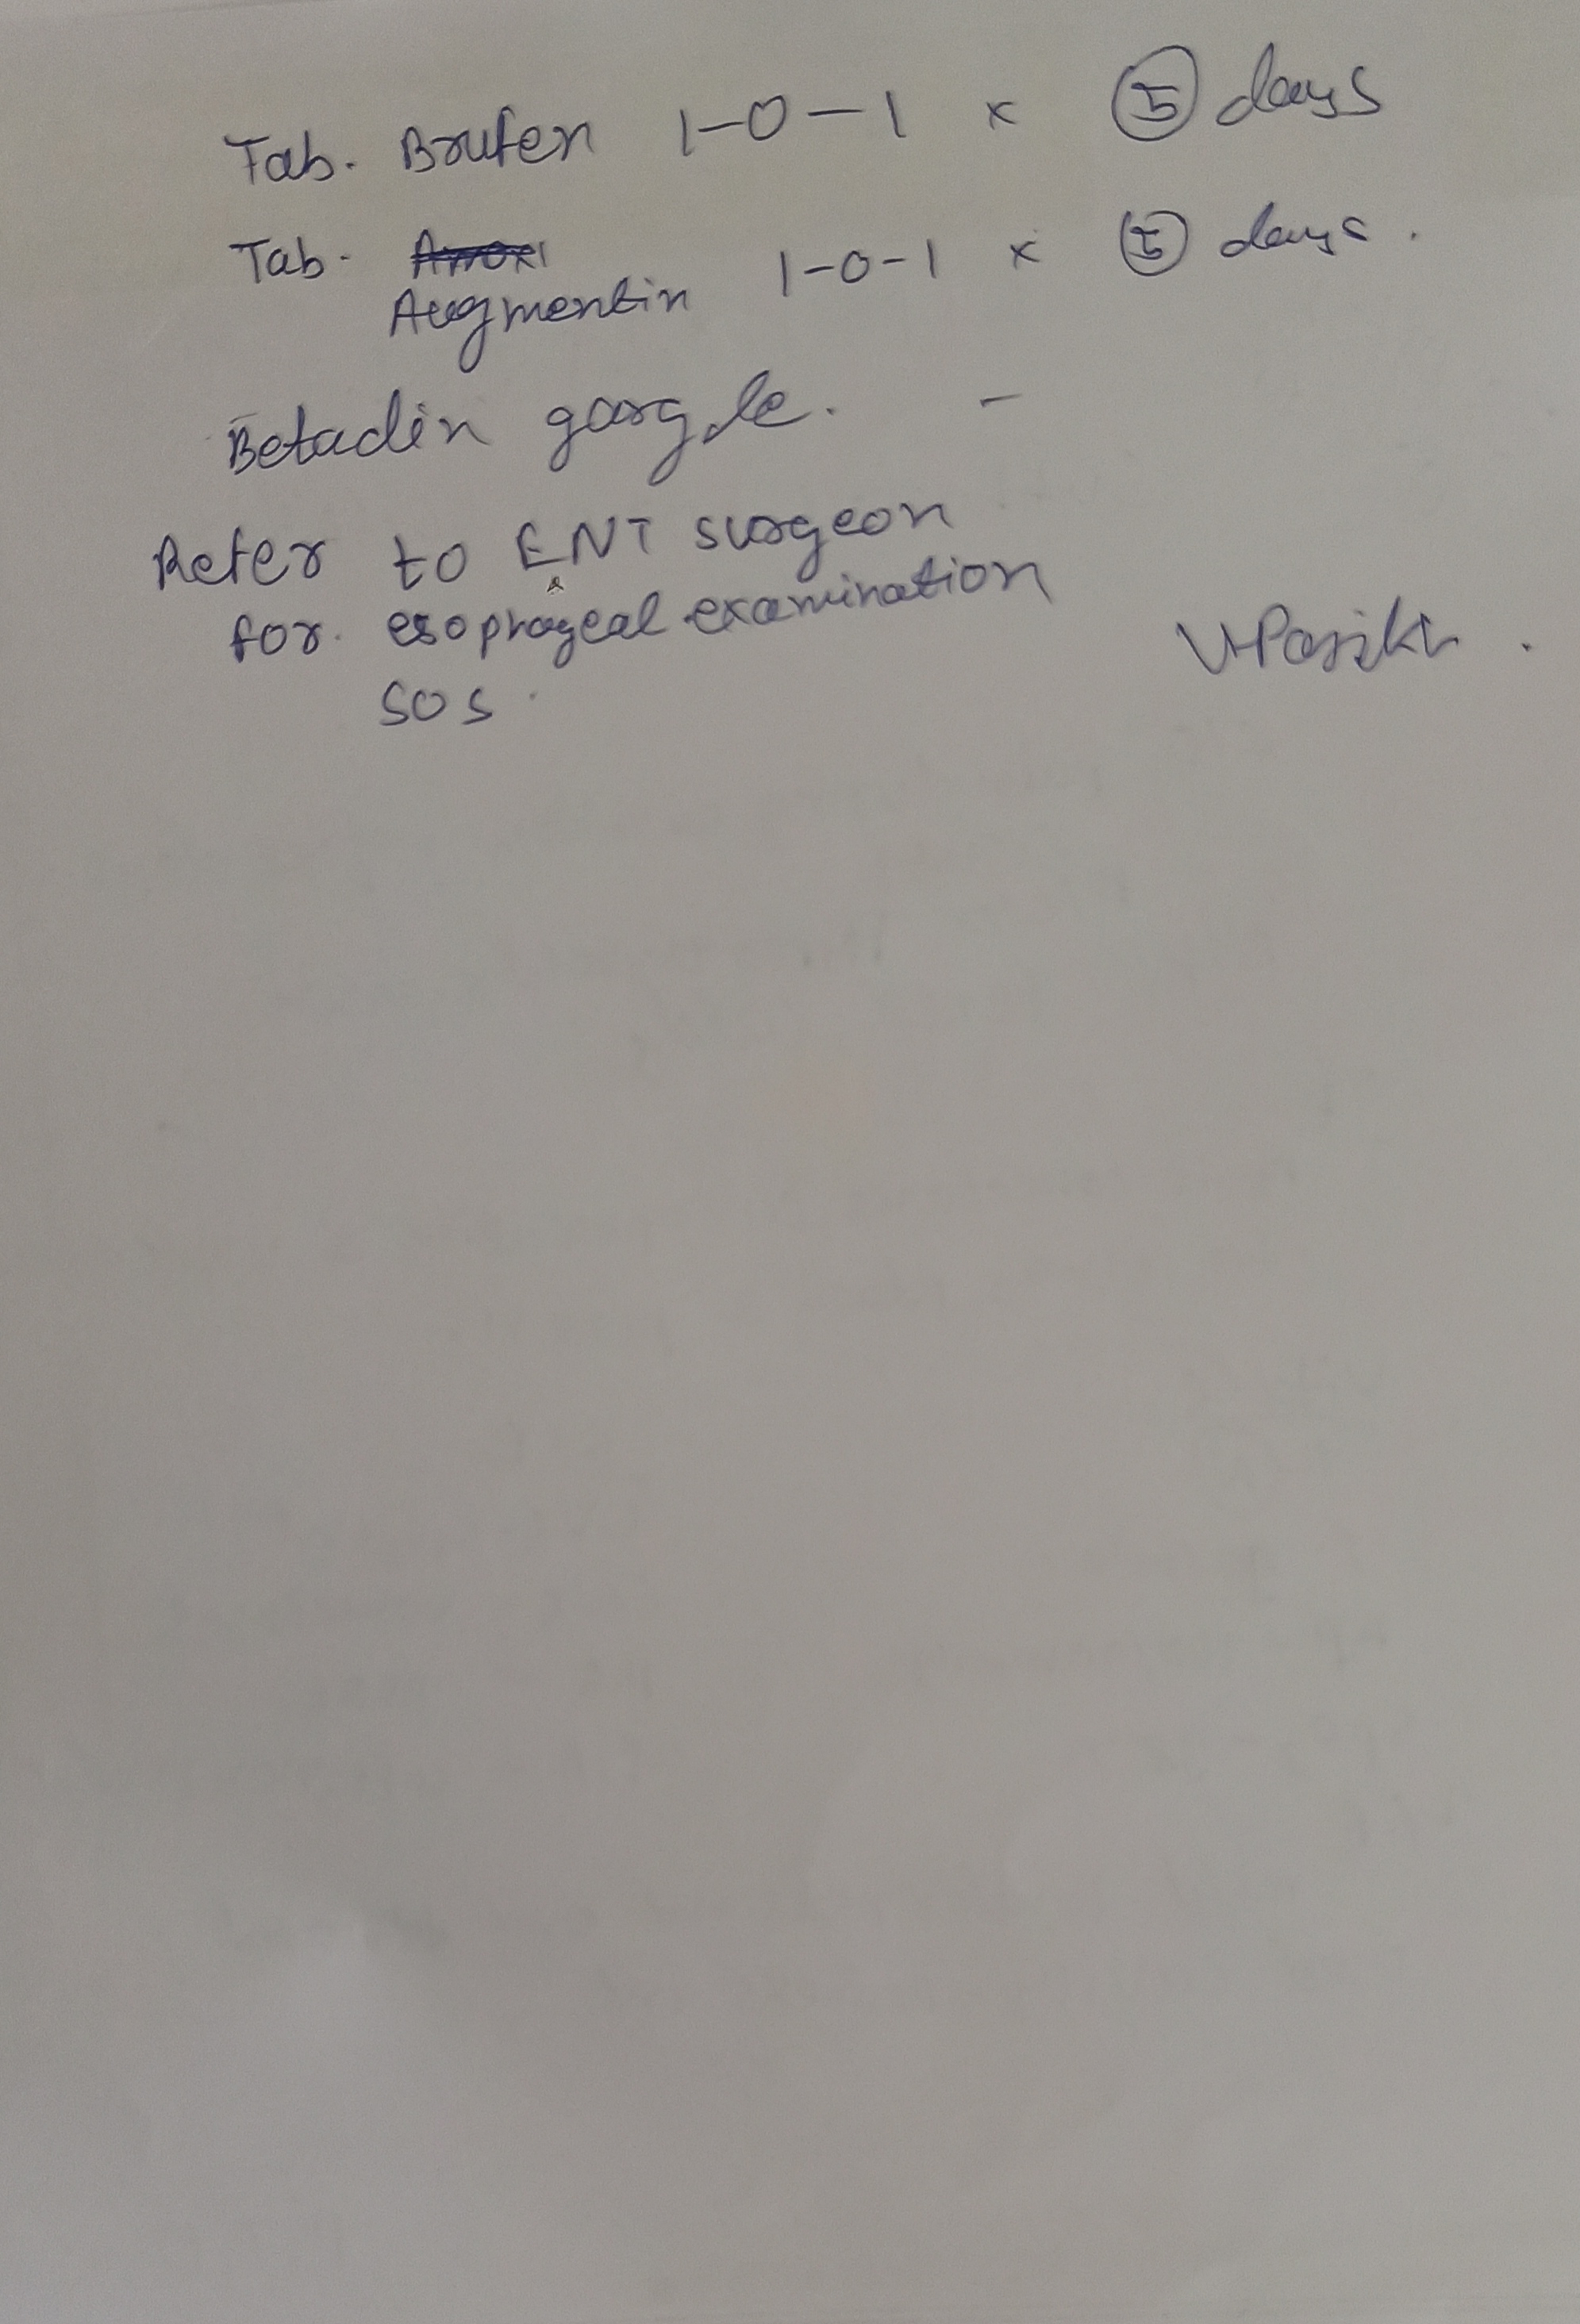 Tab. Brufen 1-0-1 x 5 days
Tab. Amoxi
Augmentin 1-0-1 x 5 days.
Betadin gargle. -
Refer to ENT surgeon
for. esophageal examination
SOS.